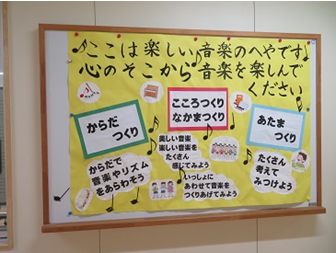 ここは楽しい音楽のへやです
心のそこから音楽を楽しんで
ください
からだ
つくり
こころつくり
なかまつくり
あたま
つくり
からだで
音楽やリズム
をあらわそう
美しい音楽
楽しい音楽を
たくさん
感じてみよう
いっしょに
あわせて音楽を
つくりあげてみよう
たくさん
考えて
みつけよう